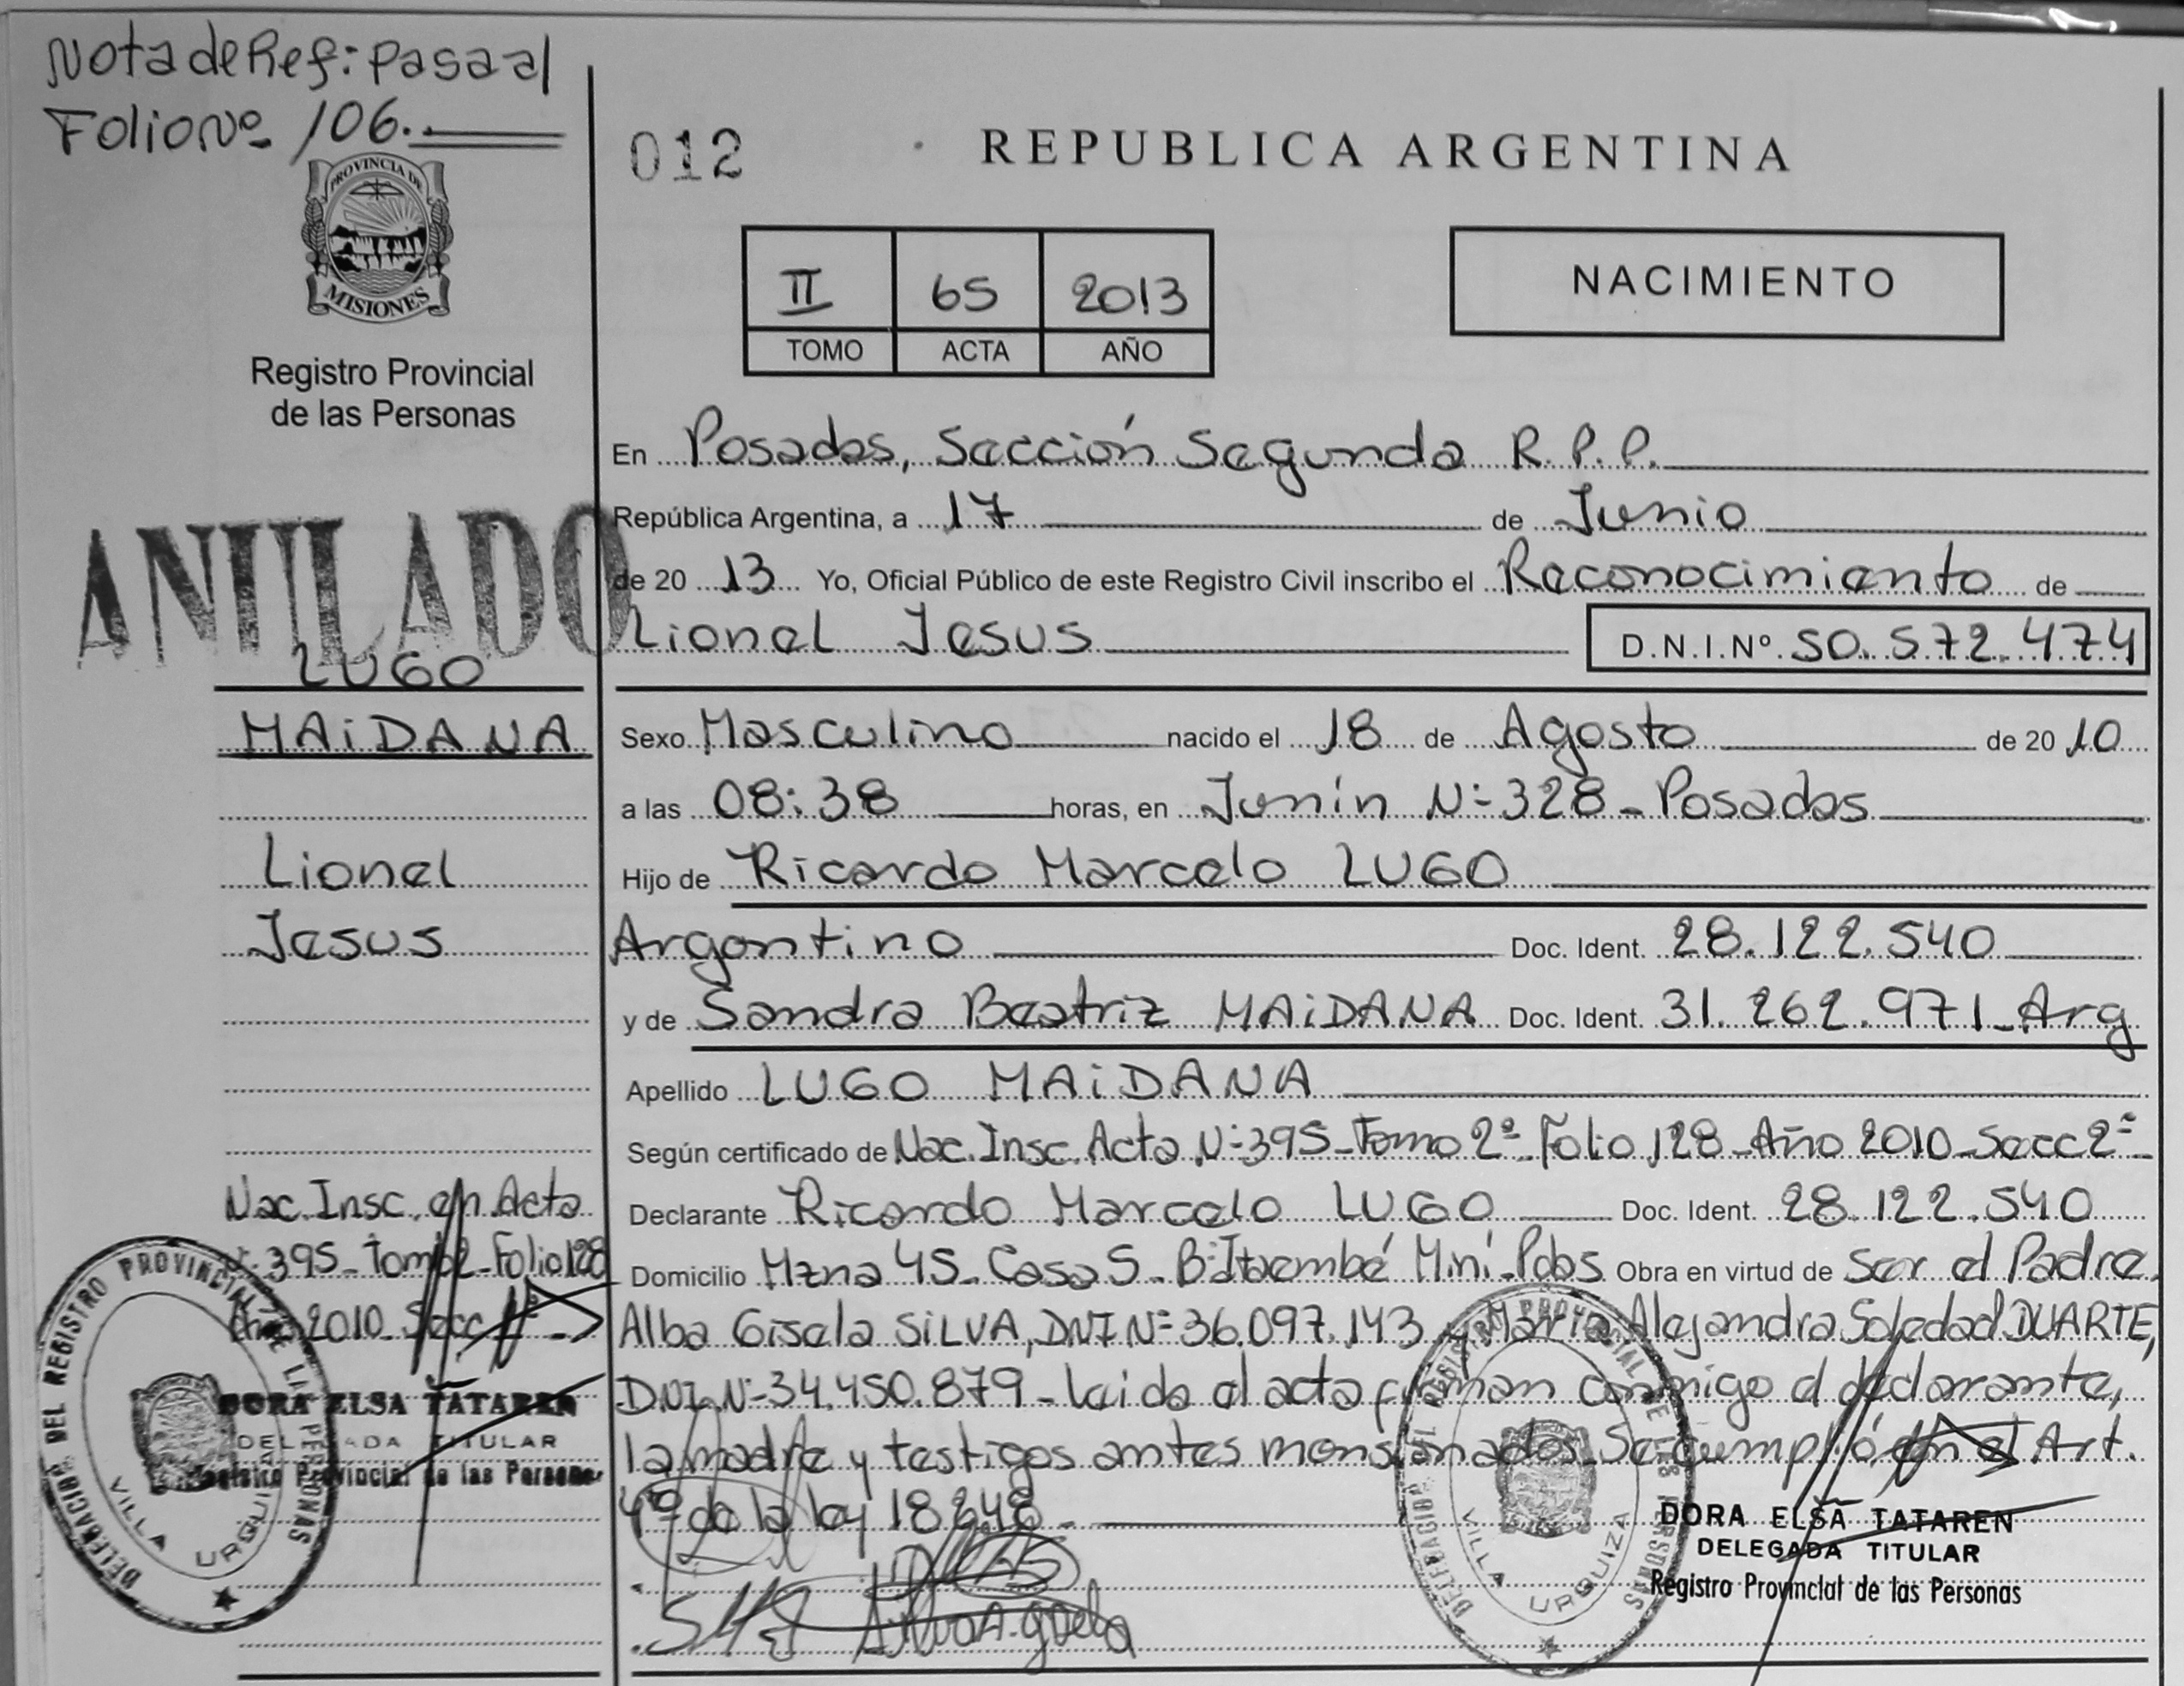 Nota de Ref: pasa al
Folio Nº 106.
PROVINCIA DE
MISIONES
Registro Provincial
de las Personas
ANULADO
LUGO
MAiDANA
Lionel
Jesus
Nac. Insc. en Acta
Nº 395 - Tomo 2 - Folio 128
Año 2010 Secc
DELEGACION DEL REGISTRO PROVINCIAL DE LAS PERSONAS
VILLA URQUIZA
DORA ELSA TATAREN
DELEGADA TITULAR
Registro Provincial de las Personas
012
REPUBLICA ARGENTINA
II 65 2013
TOMO ACTA AÑO
NACIMIENTO
En Posadas, Sección Segunda R.P.P.
República Argentina, a 17 de Junio
de 20 13 Yo, Oficial Público de este Registro Civil inscribo el Reconocimiento de
Lionel Jesus D.N.I.Nº 50.572.474
Sexo Masculino nacido el 18 de Agosto de 20 10
a las 08:38 horas, en Junín Nº 328 - Posadas
Hijo de Ricardo Marcelo LUGO
Argentino Doc. Ident. 28.122.540
y de Sandra Beatriz MAiDANA Doc. Ident. 31.262.971 - Arg
Apellido LUGO MAiDANA
Según certificado de Nac. Insc. Acta Nº 395 - Tomo 2º Folio 128 - Año 2010 - Secc 2º
Declarante Ricardo Marcelo LUGO Doc. Ident. 28.122.540
Domicilio Mzna 45 - Casa 5 - Bº Itaembé Miní - Pdas Obra en virtud de Ser el Padre.
Alba Gisela SILVA, DNI Nº 36.097.143 y Maria Alejandra Soledad DUARTE,
DNI. Nº 34.450.879 - Leida el acta firman conmigo el declarante,
la madre y testigos antes mensionados. Se cumplió en el Art.
4º de la ley 18248 -
DELEGACION DEL REGISTRO PROVINCIAL DE LAS PERSONAS
VILLA URQUIZA
DORA ELSA TATAREN
DELEGADA TITULAR
Registro Provincial de las Personas